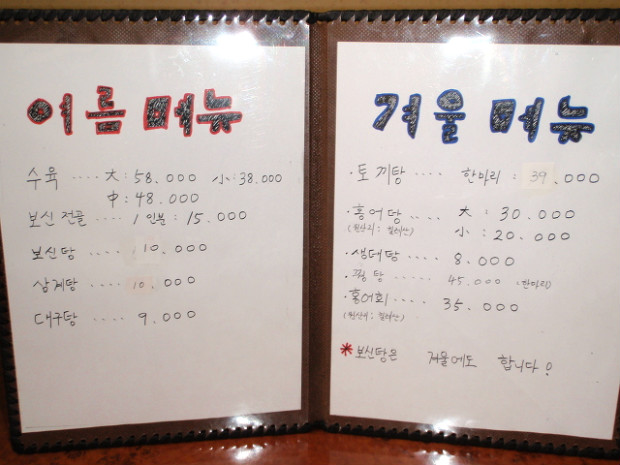 여름 메뉴
수육 .... 大 : 58.000 小 : 38.000
中 : 48.000
보신 전골 .... 1 인분 : 15.000
보신탕 .... 10.000
삼계탕 .... 10.000
대구탕 .... 9.000
겨울 메뉴
· 토끼탕 .... 한마리 : 39.000
· 홍어탕 .... 大 : 30.000
(원산지 : 칠레산) 小 : 20.000
· 생태탕 .... 8.000
· 꿩탕 .... 45.000 (한마리)
· 홍어회 .... 35.000
(원산지 : 칠레산)
* 보신탕은 겨울에도 합니다!